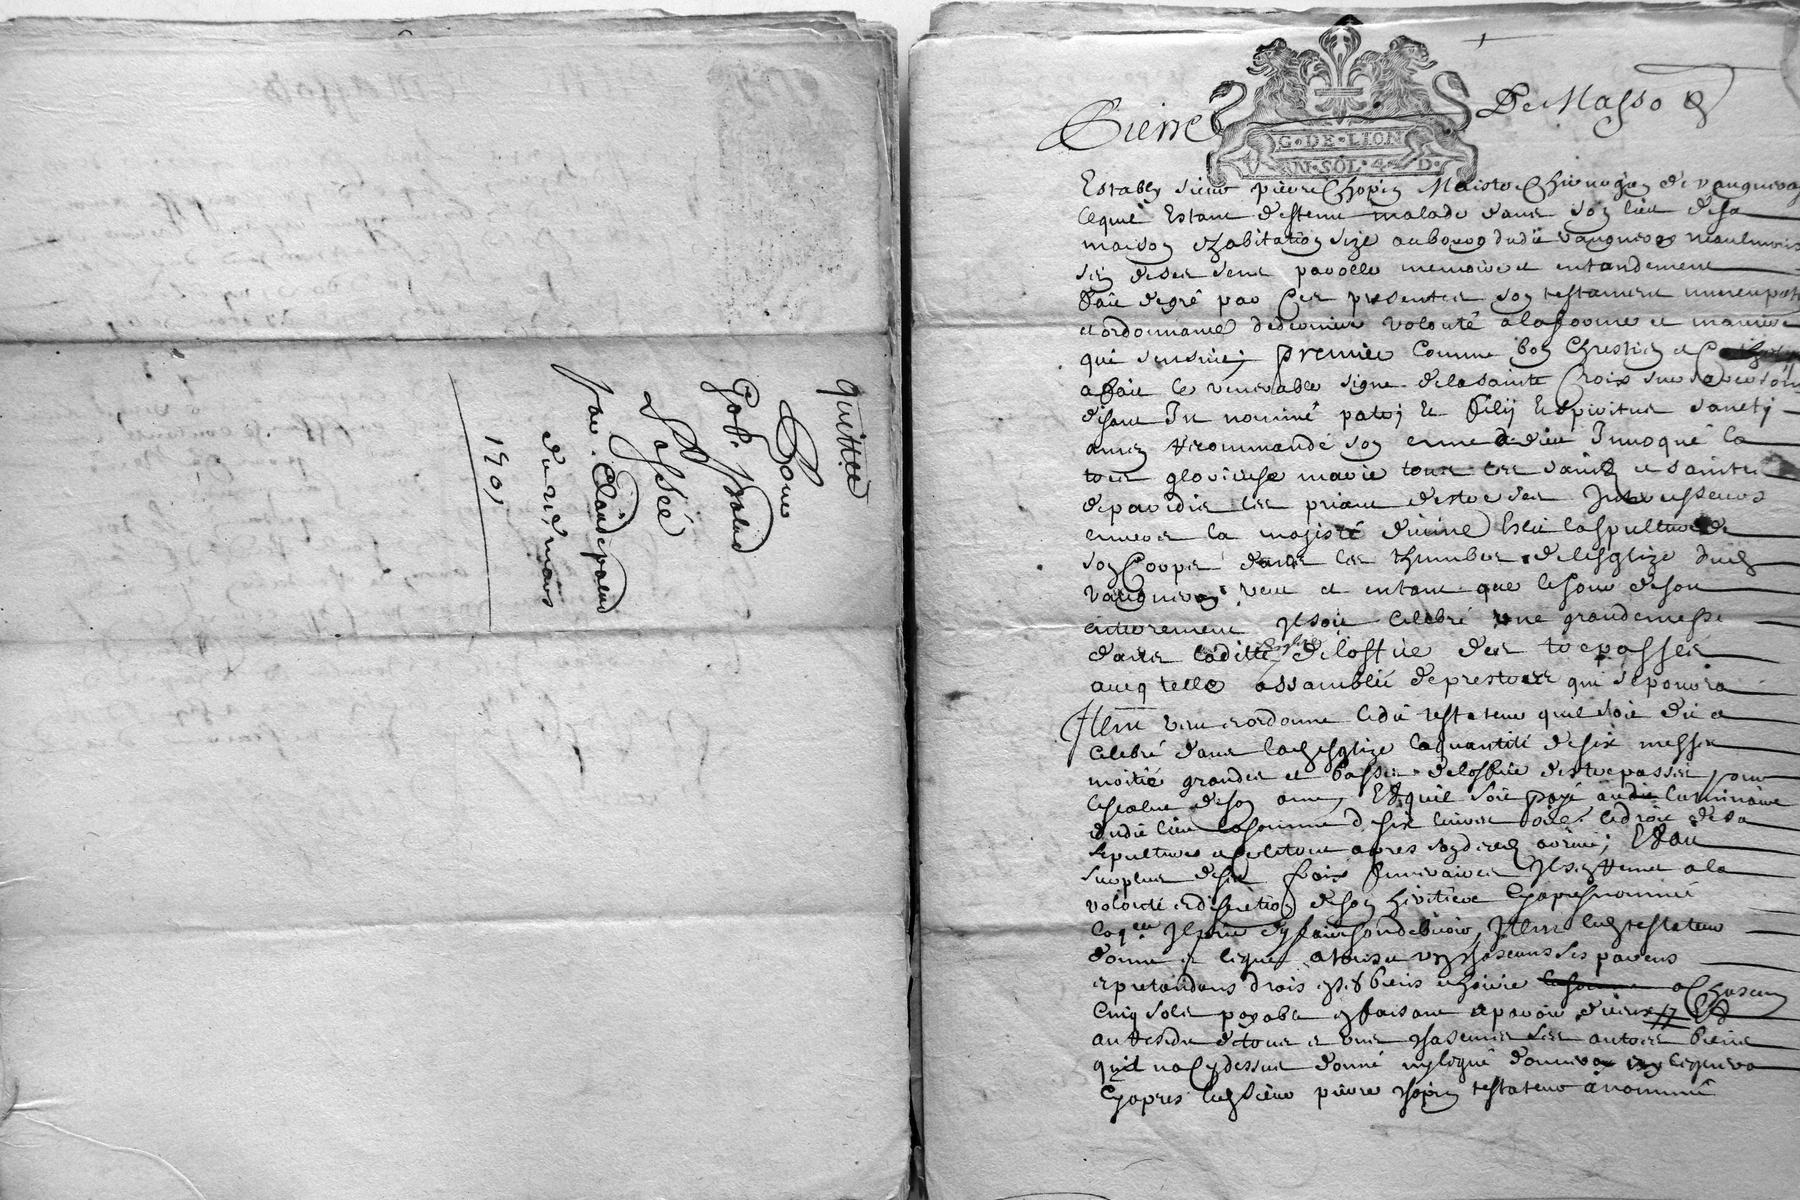 quittce
Pour
Gasp.
fossée
par Claude
du 21e mars
1701
Pierre De Masso
G·DE·LION
VN·SOL·4·D·
Estably sieur pierre Chopin Maistre Chirurgien de vaugneray
lequel Estant destenu malade dans son lieu de sa
maison dhabitation size au bourg dudit vaugneray neaulmoins
sain de ses sens parolle memoire et entandement
faict degré par Ces presentes son testament nuncupatif
et ordonnance de derniere volonté a la forme et maniere
qui sensuit; premier Comme bon Chrestien et
a faict le venerable signe de la sainte Croix sur
disant In nominé patris et filij Et spiritus sancty
amen Recommandé son ame a dieu Invoqué la
tres glorieuse marie tous les saincts et saintes
de paradis les priant destre ses Intercesseurs
envers la majesté divine Esleu la sepulture de
son Corps dans les thumbes de lesglize dudt
vaugneray veut et entant que le jour de son
enterrement Il soit celebré une grande messe
dans laditte Esglize de loffice des trepassés
aueq telle assamblée de prestres qui se pourra
Item veut et ordonne ledit testateur quil soit dit et
celebré dans lad esglize la quantité de six messes
moitié grandes et basses de loffice des trepassés pour
le salut de son ame, Et quil soit payé audit luminaire
dudit lieu la somme de six livres pour le droit de sa
sepulture et le tout apres son decedz advenu; Et au
surplus de ses frais funeraires Il sen remet a la
volonté et discretion de son heritiere Cyapres nommée
laqelle Il prie den faire son debvoir, Item led testateur
donne et legue a tous et un chascuns ses parens
et pretandans droits en ses biens et hoirie la somme a Chascun
Cinq sols payable en faisant apparoir diceux // Et
au residu de tous et uns chascunes ses autres biens
quil na Cy dessus donné ny legué donnera ny leguera
Cyapres led sieur pierre chopin testateur a nommé